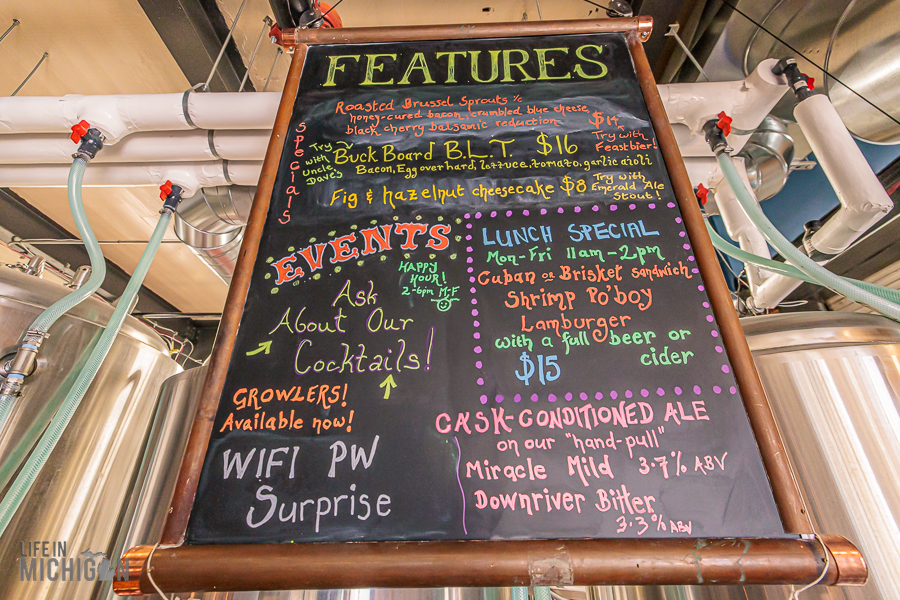 FEATURES
Specials
Roasted Brussel Sprouts %
honey-cured bacon, crumbled blue cheese,
black cherry balsamic reduction $14
Try with
Feastbier!
Try with Uncle Dave's
Buck Board B.L.T. $16
Bacon, Egg over hard, lettuce, tomato, garlic aioli
Fig & hazelnut cheesecake $8
Try with
Emerald Ale
Stout!
EVENTS
HAPPY
HOUR!
2-6pm M-F
Ask
About Our
Cocktails!
GROWLERS!
Available now!
WIFI PW
Surprise
LUNCH SPECIAL
Mon-Fri 11am-2pm
Cuban or Brisket sandwich
Shrimp Po'boy
Lamburger
with a full beer or
cider
$15
CASK-CONDITIONED ALE
on our "hand-pull"
Miracle Mild 3.7% ABV
Downriver Bitter
3.3% ABV
LIFE IN
MICHIGAN